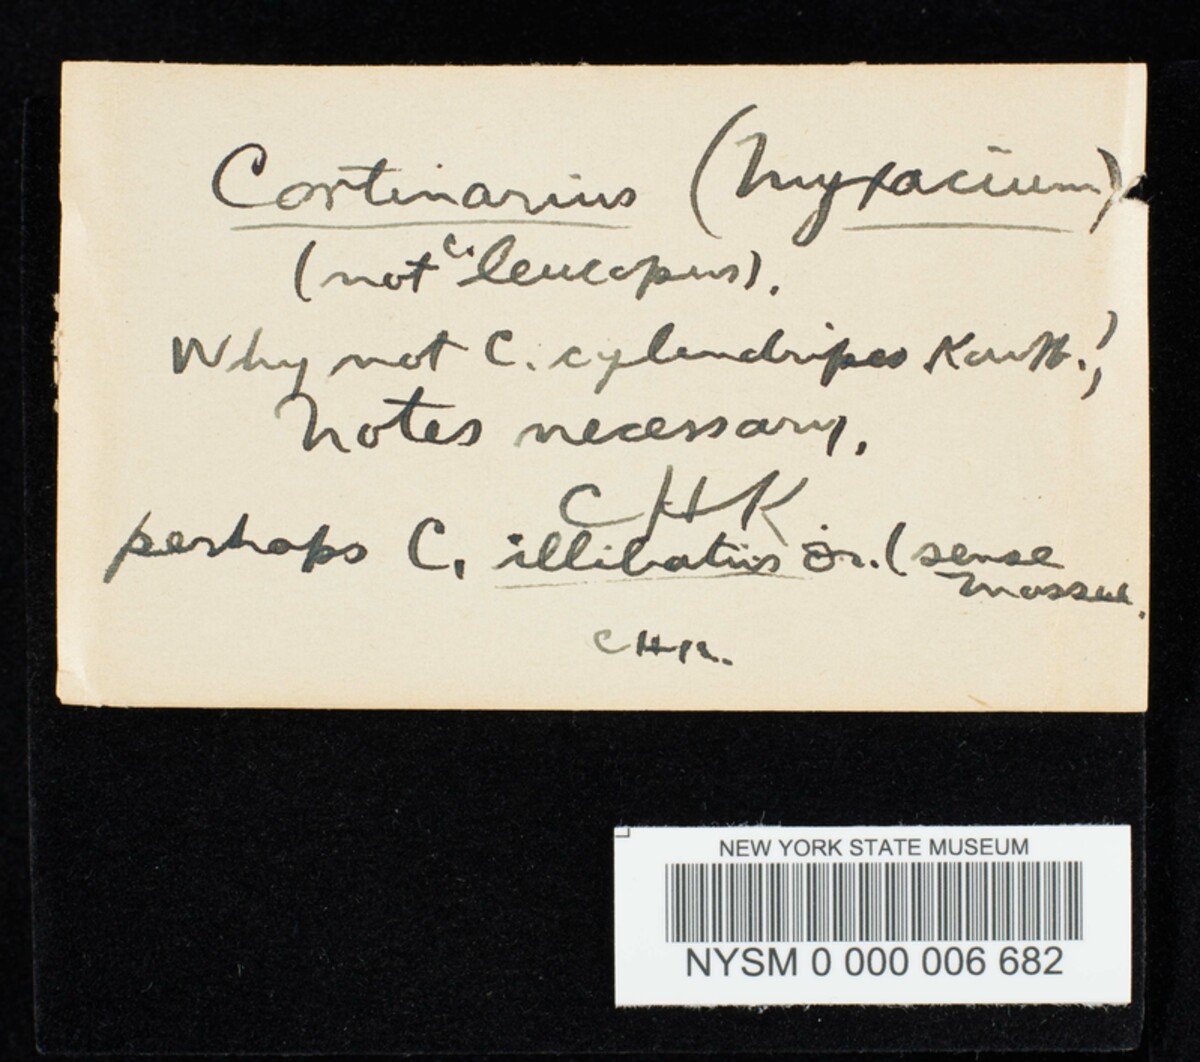 Cortinarius (Myxacium)
(not C. leucopus).
Why not C. cylindripes Kauff.?
Notes necessary.
CHK
perhaps C. illibatus Fr. (sense
Massee.
CHK.
NEW YORK STATE MUSEUM
NYSM 0 000 006 682